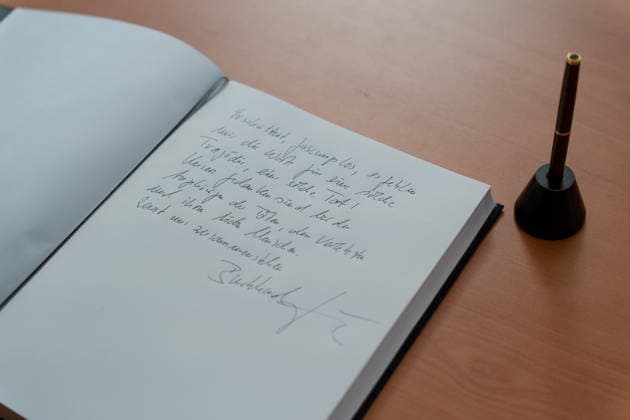 Erschüttert, fassungslos, es fehlen
mir die Worte für eine solche
Tragödie, eine solche Tat!
Meine Gedanken sind bei den
Angehörigen der Toten, den Verletzten
und ihren lieben Menschen.
Lasst uns zusammenstehen